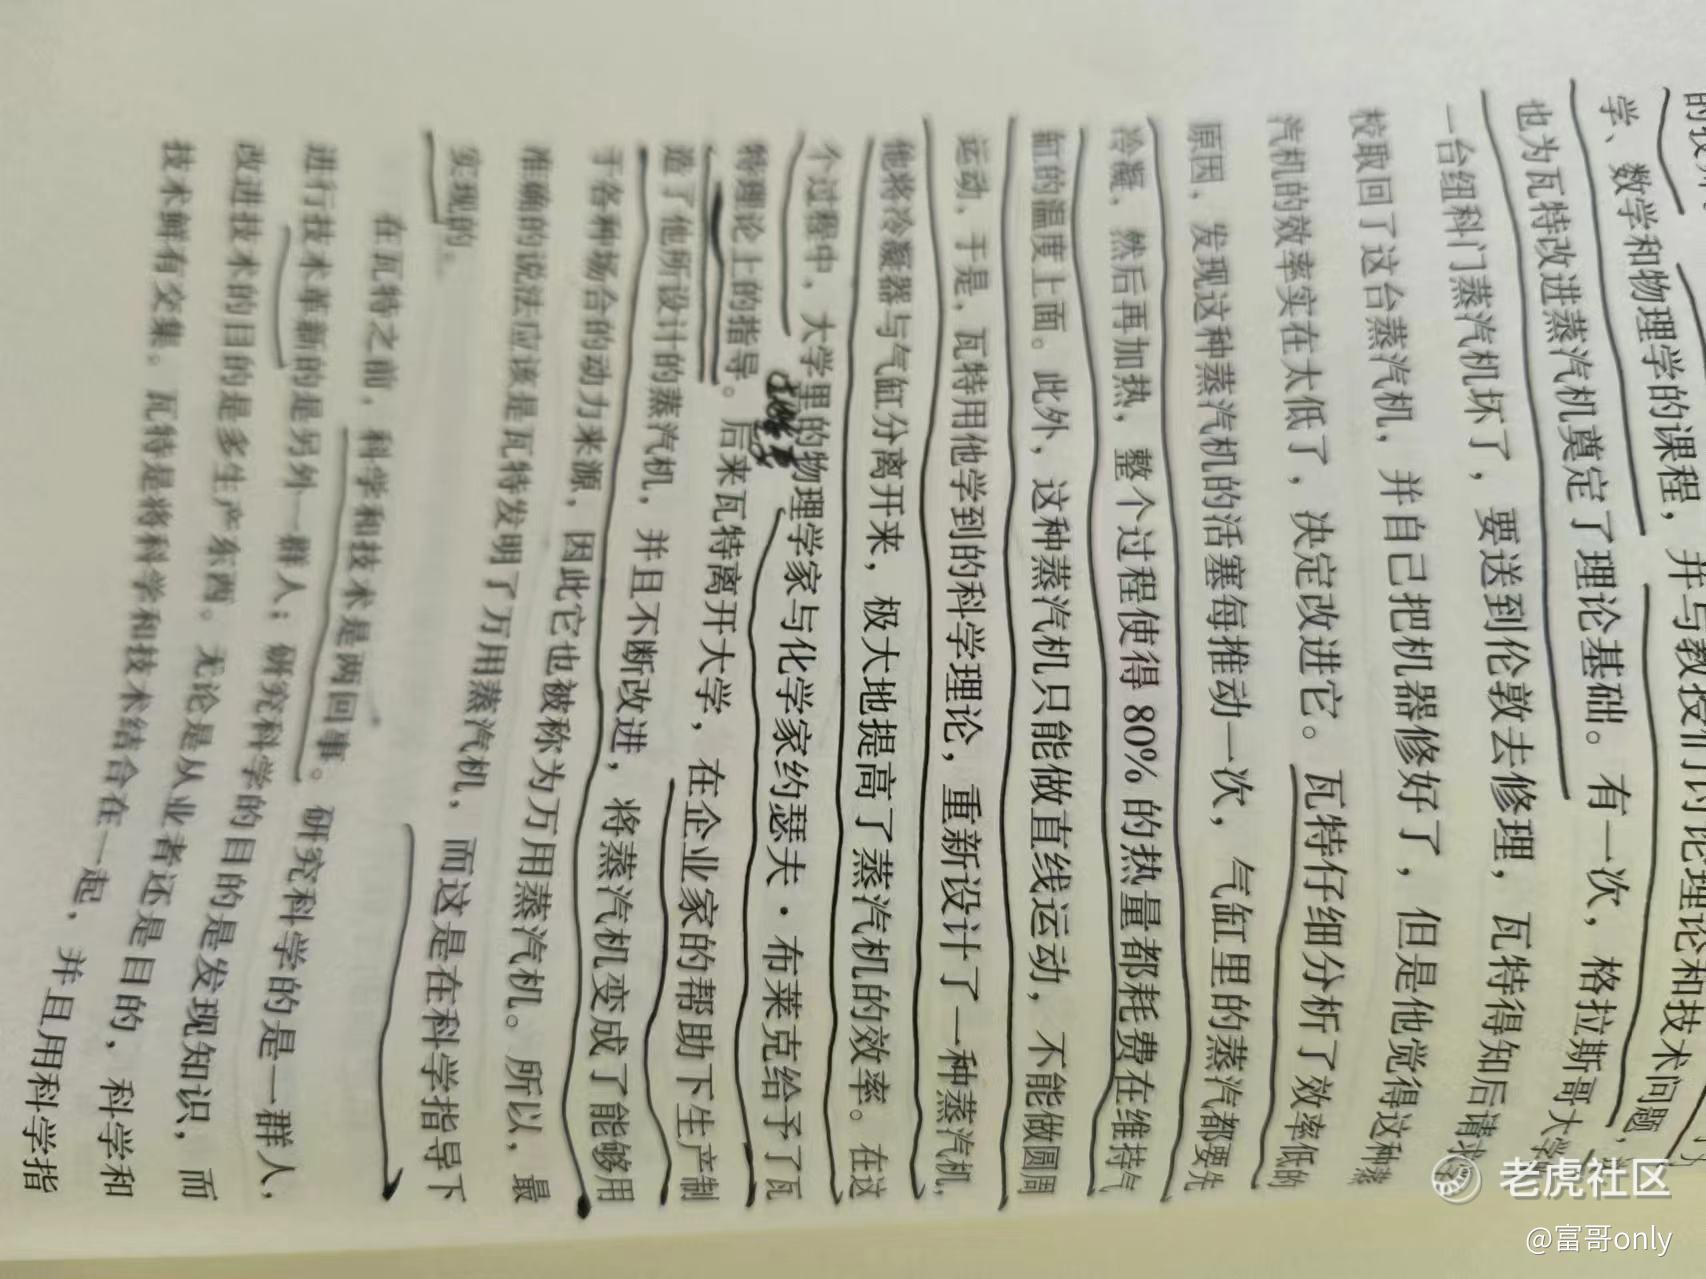 学、数学和物理学的课程，并与教授们讨论理论和技术问题，
也为瓦特改进蒸汽机奠定了理论基础。有一次，格拉斯哥大学
一台纽科门蒸汽机坏了，要送到伦敦去修理，瓦特得知后请求
校取回了这台蒸汽机，并自己把机器修好了，但是他觉得这种蒸
汽机的效率实在太低了，决定改进它。瓦特仔细分析了效率低的
原因，发现这种蒸汽机的活塞每推动一次，气缸里的蒸汽都要先
冷凝，然后再加热，整个过程使得 80% 的热量都耗费在维持气
缸的温度上面。此外，这种蒸汽机只能做直线运动，不能做圆周
运动，于是，瓦特用他学到的科学理论，重新设计了一种蒸汽机，
他将冷凝器与气缸分离开来，极大地提高了蒸汽机的效率。在这
个过程中，大学里的物理学家与化学家约瑟夫·布莱克给予了瓦
特理论上的指导。后来瓦特离开大学，在企业家的帮助下生产制
造了他所设计的蒸汽机，并且不断改进，将蒸汽机变成了能够用
于各种场合的动力来源，因此它也被称为万用蒸汽机。所以，最
准确的说法应该是瓦特发明了万用蒸汽机，而这是在科学指导下
实现的。
在瓦特之前，科学和技术是两回事。研究科学的是一群人，
进行技术革新的是另外一群人；研究科学的目的是发现知识，而
改进技术的目的是多生产东西。无论是从业者还是目的，科学和
技术鲜有交集。瓦特是将科学和技术结合在一起，并且用科学指
老虎社区
@富哥only